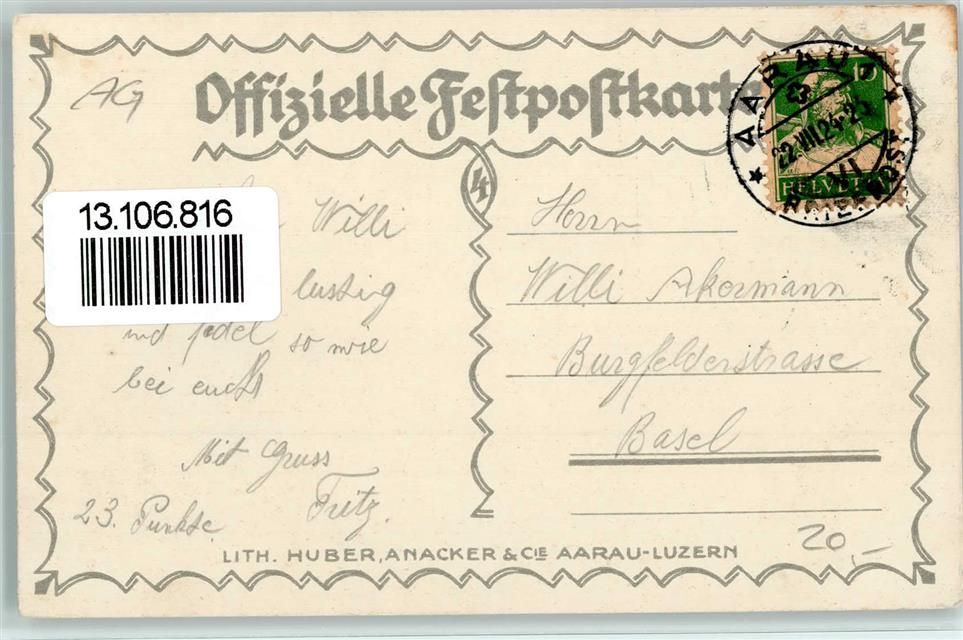 AG
Offizielle Festpostkarte
10
AARAU
22.VIII.24-23
HELVETIA
4
13.106.816
Willi
lustig
und fidel so wie
bei euch
Mit Gruss
Fritz
23. Punkte
Herrn
Willi Akermann
Burgfelderstrasse
Basel
20,-
LITH. HUBER, ANACKER & CIE AARAU-LUZERN